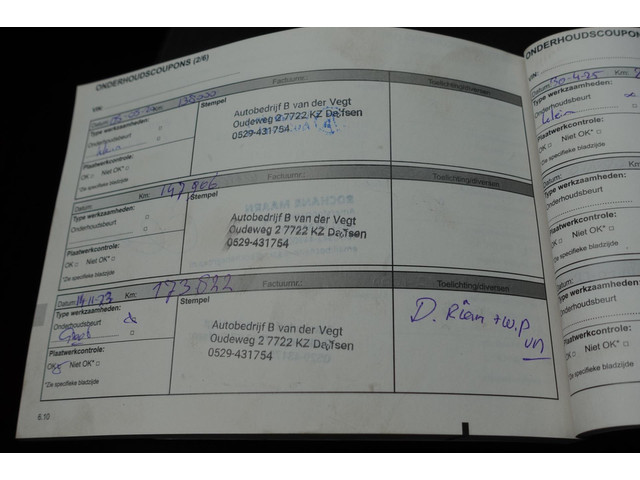 ONDERHOUDSCOUPONS (2/6)
VIN:
Datum: Km: 132000 Factuurnr.: Toelichting/diversen
Type werkzaamheden: Stempel
Onderhoudsbeurt
Autobedrijf B van der Vegt
Oudeweg 2 7722 KZ Dalfsen
0529-431754
Plaatwerkcontrole:
OK Niet OK*
*Zie specifieke bladzijde
Datum: Km: 147.906 Factuurnr.: Toelichting/diversen
Type werkzaamheden: Stempel
Onderhoudsbeurt
Autobedrijf B van der Vegt
Oudeweg 2 7722 KZ Dalfsen
0529-431754
Plaatwerkcontrole:
OK Niet OK*
*Zie specifieke bladzijde
Datum: 14-11-23 Km: 173.822 Factuurnr.: Toelichting/diversen
Type werkzaamheden: Stempel
Onderhoudsbeurt
Groot
Autobedrijf B van der Vegt
Oudeweg 2 7722 KZ Dalfsen
0529-431754
D. Riem + W.P
vn
Plaatwerkcontrole:
OK Niet OK*
*Zie specifieke bladzijde
6.10
ONDERHOUDSCOUPON
VIN:
Datum: 30-4-25 Km:
Type werkzaamheden:
Onderhoudsbeurt
Klein
Plaatwerkcontrole:
OK Niet OK*
*Zie specifieke bladzijde
Datum:
Type werkzaamheden:
Onderhoudsbeurt
Plaatwerkcontrole:
OK Niet OK*
*Zie specifieke bladzijde
Datum:
Type werkzaamheden:
Onderhoudsbeurt
Plaatwerkcontrole:
OK Niet OK*
*Zie specifieke bladzijde